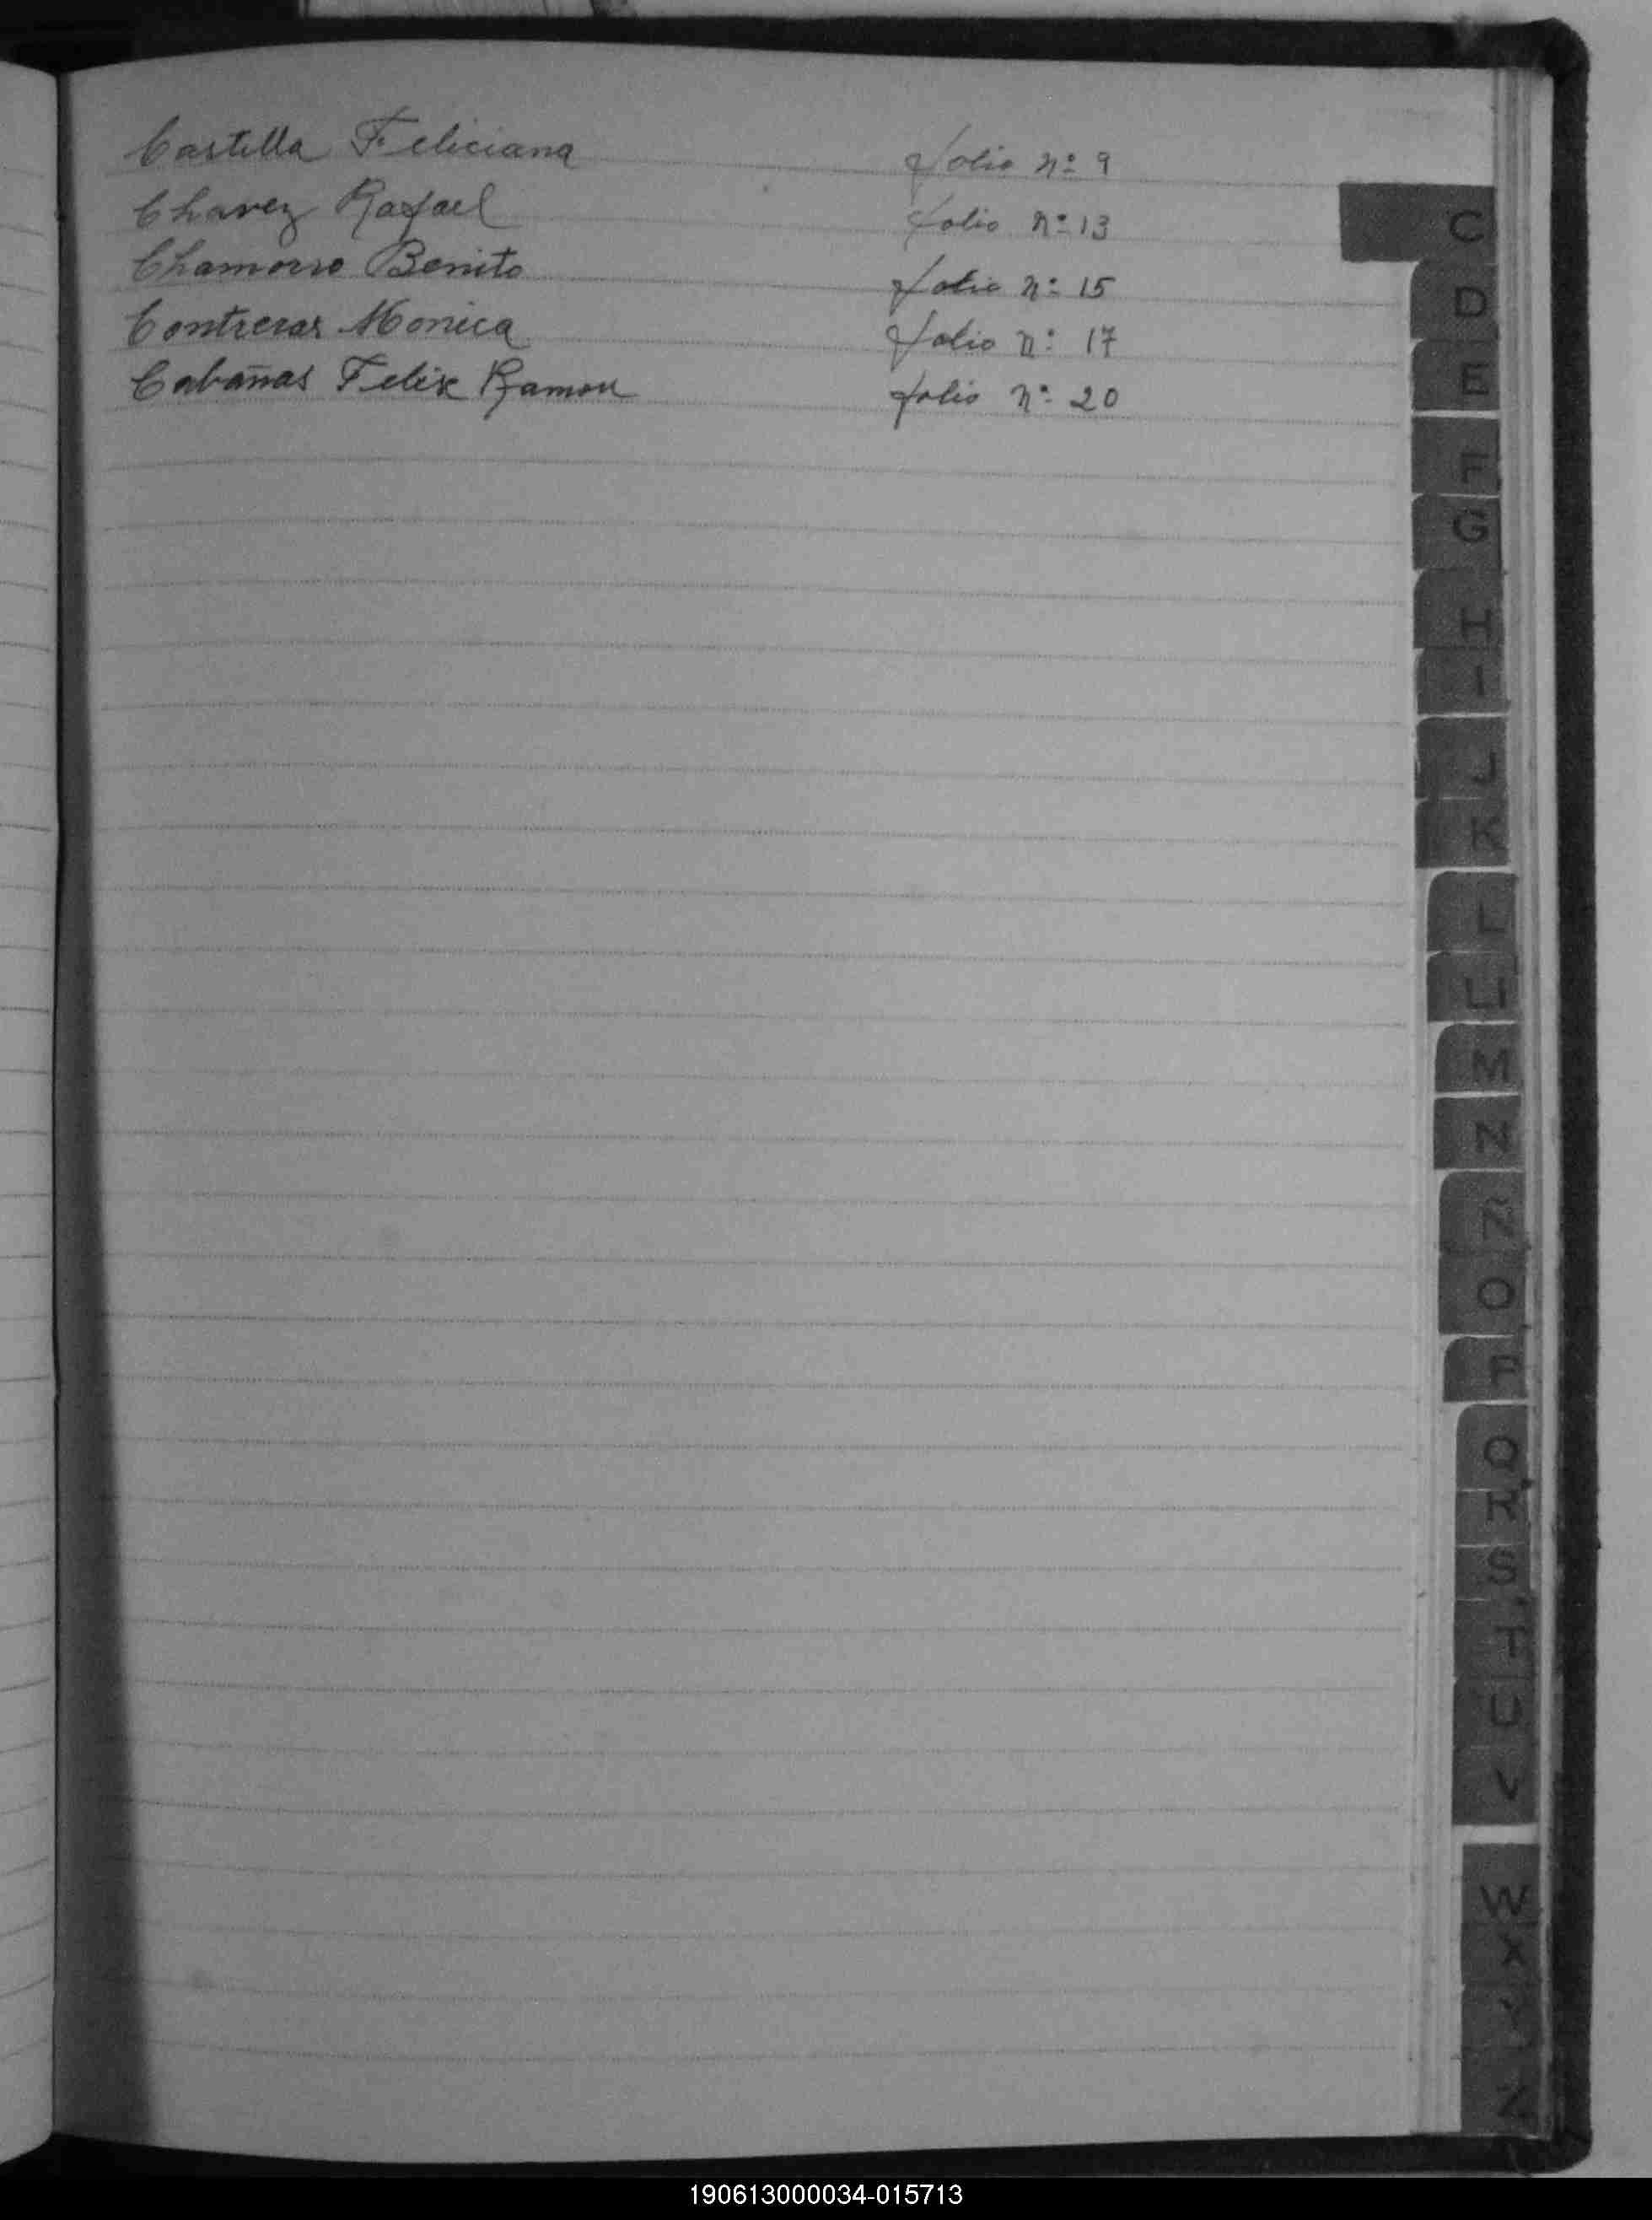 Castilla Feliciana folio nº 9
Chavez Rafael folio nº 13
Chamorro Benito folio nº 15
Contreras Monica folio nº 17
Cabañas Felix Ramon folio nº 20
C
D
E
F
G
H
I
J
K
L
LL
M
N
Ñ
O
P
Q
R
S
T
U
V
W
X
Y
Z
190613000034-015713